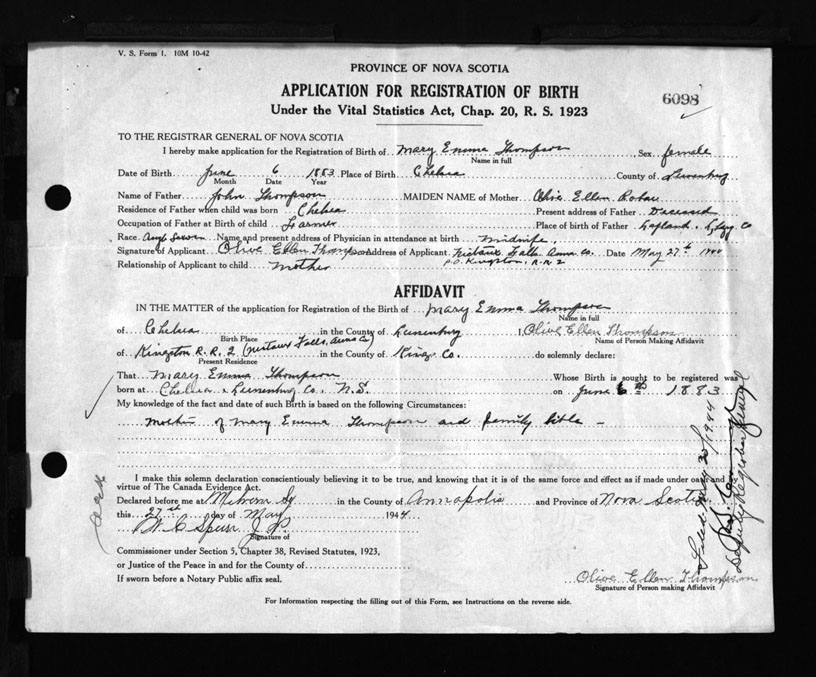 V. S. Form 1. 10M 10-42
PROVINCE OF NOVA SCOTIA
APPLICATION FOR REGISTRATION OF BIRTH
6098
Under the Vital Statistics Act, Chap. 20, R. S. 1923
TO THE REGISTRAR GENERAL OF NOVA SCOTIA
I hereby make application for the Registration of Birth of Mary Emma Thompson, Sex female
Name in full
Date of Birth June 6 1883 Place of Birth Chelsea County of Lunenburg
Month Date Year
Name of Father John Thompson MAIDEN NAME of Mother Olive Ellen
Residence of Father when child was born Chelsea Present address of Father Deceased
Occupation of Father at Birth of child Farmer Place of Birth of Father Lapland, Co
Race Name and present address of Physician in attendance at birth midwife
Signature of Applicant Olive Ellen Thompson Address of Applicant Nictaux Falls Anna Co. Date May 27th
Relationship of Applicant to child mother P.O. Kingston, R.R.2
AFFIDAVIT
IN THE MATTER of the application for Registration of the Birth of Mary Emma Thompson
Name in full
of Chelsea in the County of Lunenburg I, Olive Ellen Thompson
Birth Place Name of Person Making Affidavit
of Kingston R.R. 2 (Nictaux Falls, Anna Co) in the County of Kings Co. do solemnly declare:
Present Residence
That Mary Emma Thompson Whose Birth is sought to be registered was
born at Chelsea Lunenburg Co. N.S. on June 6 1883
My knowledge of the fact and date of such Birth is based on the following Circumstances:
mother of Mary Emma Thompson and family bible -
I make this solemn declaration conscientiously believing it to be true, and knowing that it is of the same force and effect as if made under oath and
virtue of The Canada Evidence Act.
Declared before me at in the County of Annapolis and Province of Nova Scotia
this 27st day of May 1944
W. C. Spurr J P.
Signature of
Commissioner under Section 5, Chapter 38, Revised Statutes, 1923,
or Justice of the Peace in and for the County of
If sworn before a Notary Public affix seal.
Olive Ellen Thompson
Signature of Person making Affidavit
For Information respecting the filling out of this Form, see Instructions on the reverse side.
Filed May 30/1944
Deputy Registrar General